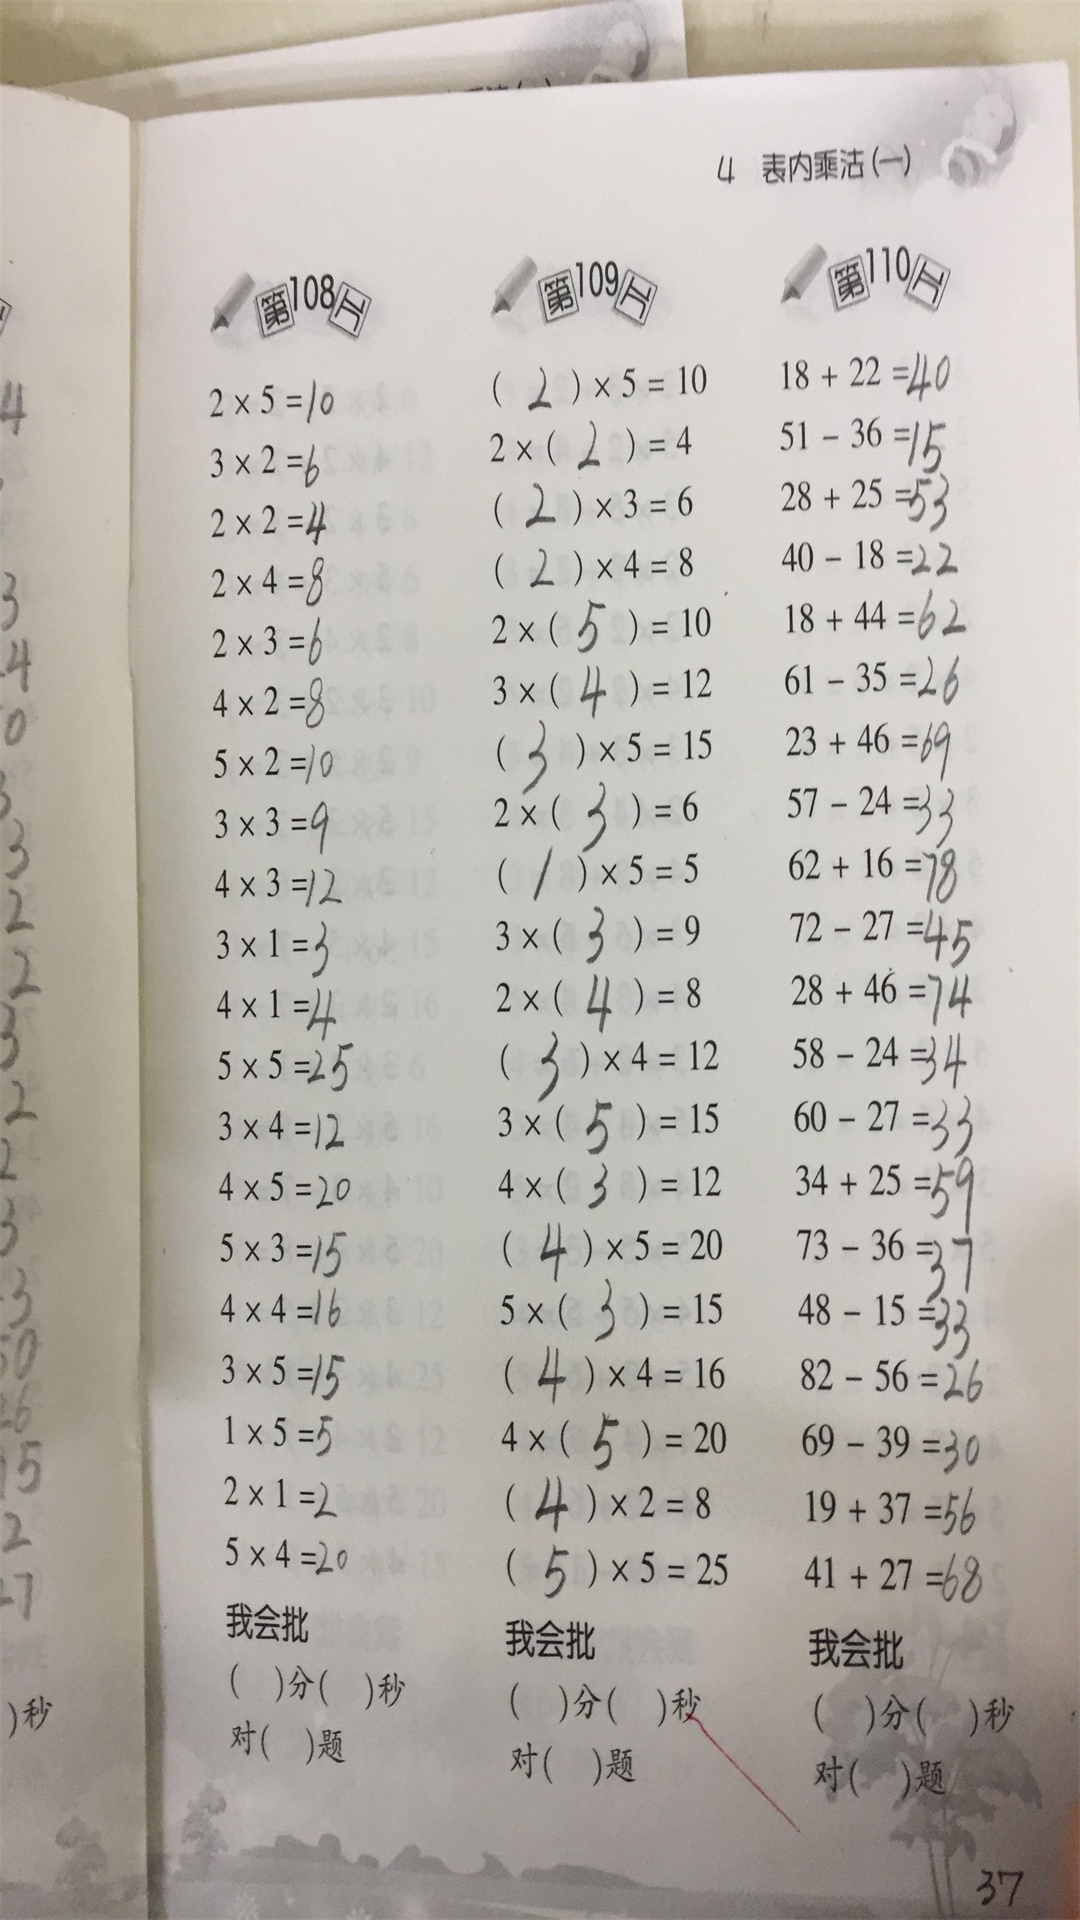 4 表内乘法(一)
第108工
2 × 5 =10
3 × 2 =6
2 × 2 =4
2 × 4 =8
2 × 3 =6
4 × 2 =8
5 × 2 =10
3 × 3 =9
4 × 3 =12
3 × 1 =3
4 × 1 =4
5 × 5 =25
3 × 4 =12
4 × 5 =20
5 × 3 =15
4 × 4 =16
3 × 5 =15
1 × 5 =5
2 × 1 =2
5 × 4 =20
我会批
( )分( )秒
对( )题
第109工
( 2 ) × 5 = 10
2 × ( 2 ) = 4
( 2 ) × 3 = 6
( 2 ) × 4 = 8
2 × ( 5 ) = 10
3 × ( 4 ) = 12
( 3 ) × 5 = 15
2 × ( 3 ) = 6
( 1 ) × 5 = 5
3 × ( 3 ) = 9
2 × ( 4 ) = 8
( 3 ) × 4 = 12
3 × ( 5 ) = 15
4 × ( 3 ) = 12
( 4 ) × 5 = 20
5 × ( 3 ) = 15
( 4 ) × 4 = 16
4 × ( 5 ) = 20
( 4 ) × 2 = 8
( 5 ) × 5 = 25
我会批
( )分( )秒
对( )题
第110工
18 + 22 =40
51 − 36 =15
28 + 25 =53
40 − 18 =22
18 + 44 =62
61 − 35 =26
23 + 46 =69
57 − 24 =33
62 + 16 =78
72 − 27 =45
28 + 46 =74
58 − 24 =34
60 − 27 =33
34 + 25 =59
73 − 36 =37
48 − 15 =33
82 − 56 =26
69 − 39 =30
19 + 37 =56
41 + 27 =68
我会批
( )分( )秒
对( )题
37